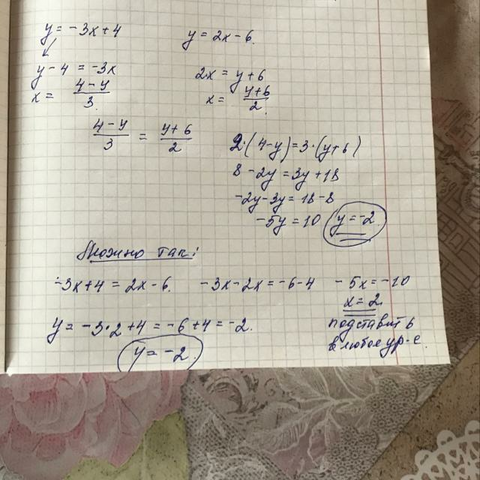 y = -3x+4    y = 2x-6.
y-4 = -3x    2x = y+6
x = (4-y)/3    x = (y+6)/2
(4-y)/3 = (y+6)/2    2·(4-y)=3·(y+6)
8-2y = 3y+18
-2y-3y = 18-8
-5y = 10    y = -2
Можно так:
-3x+4 = 2x-6.    -3x-2x = -6-4    -5x = -10
x = 2
y = -3·2+4 = -6+4 = -2.    подставить
в любое ур-е.
y = -2